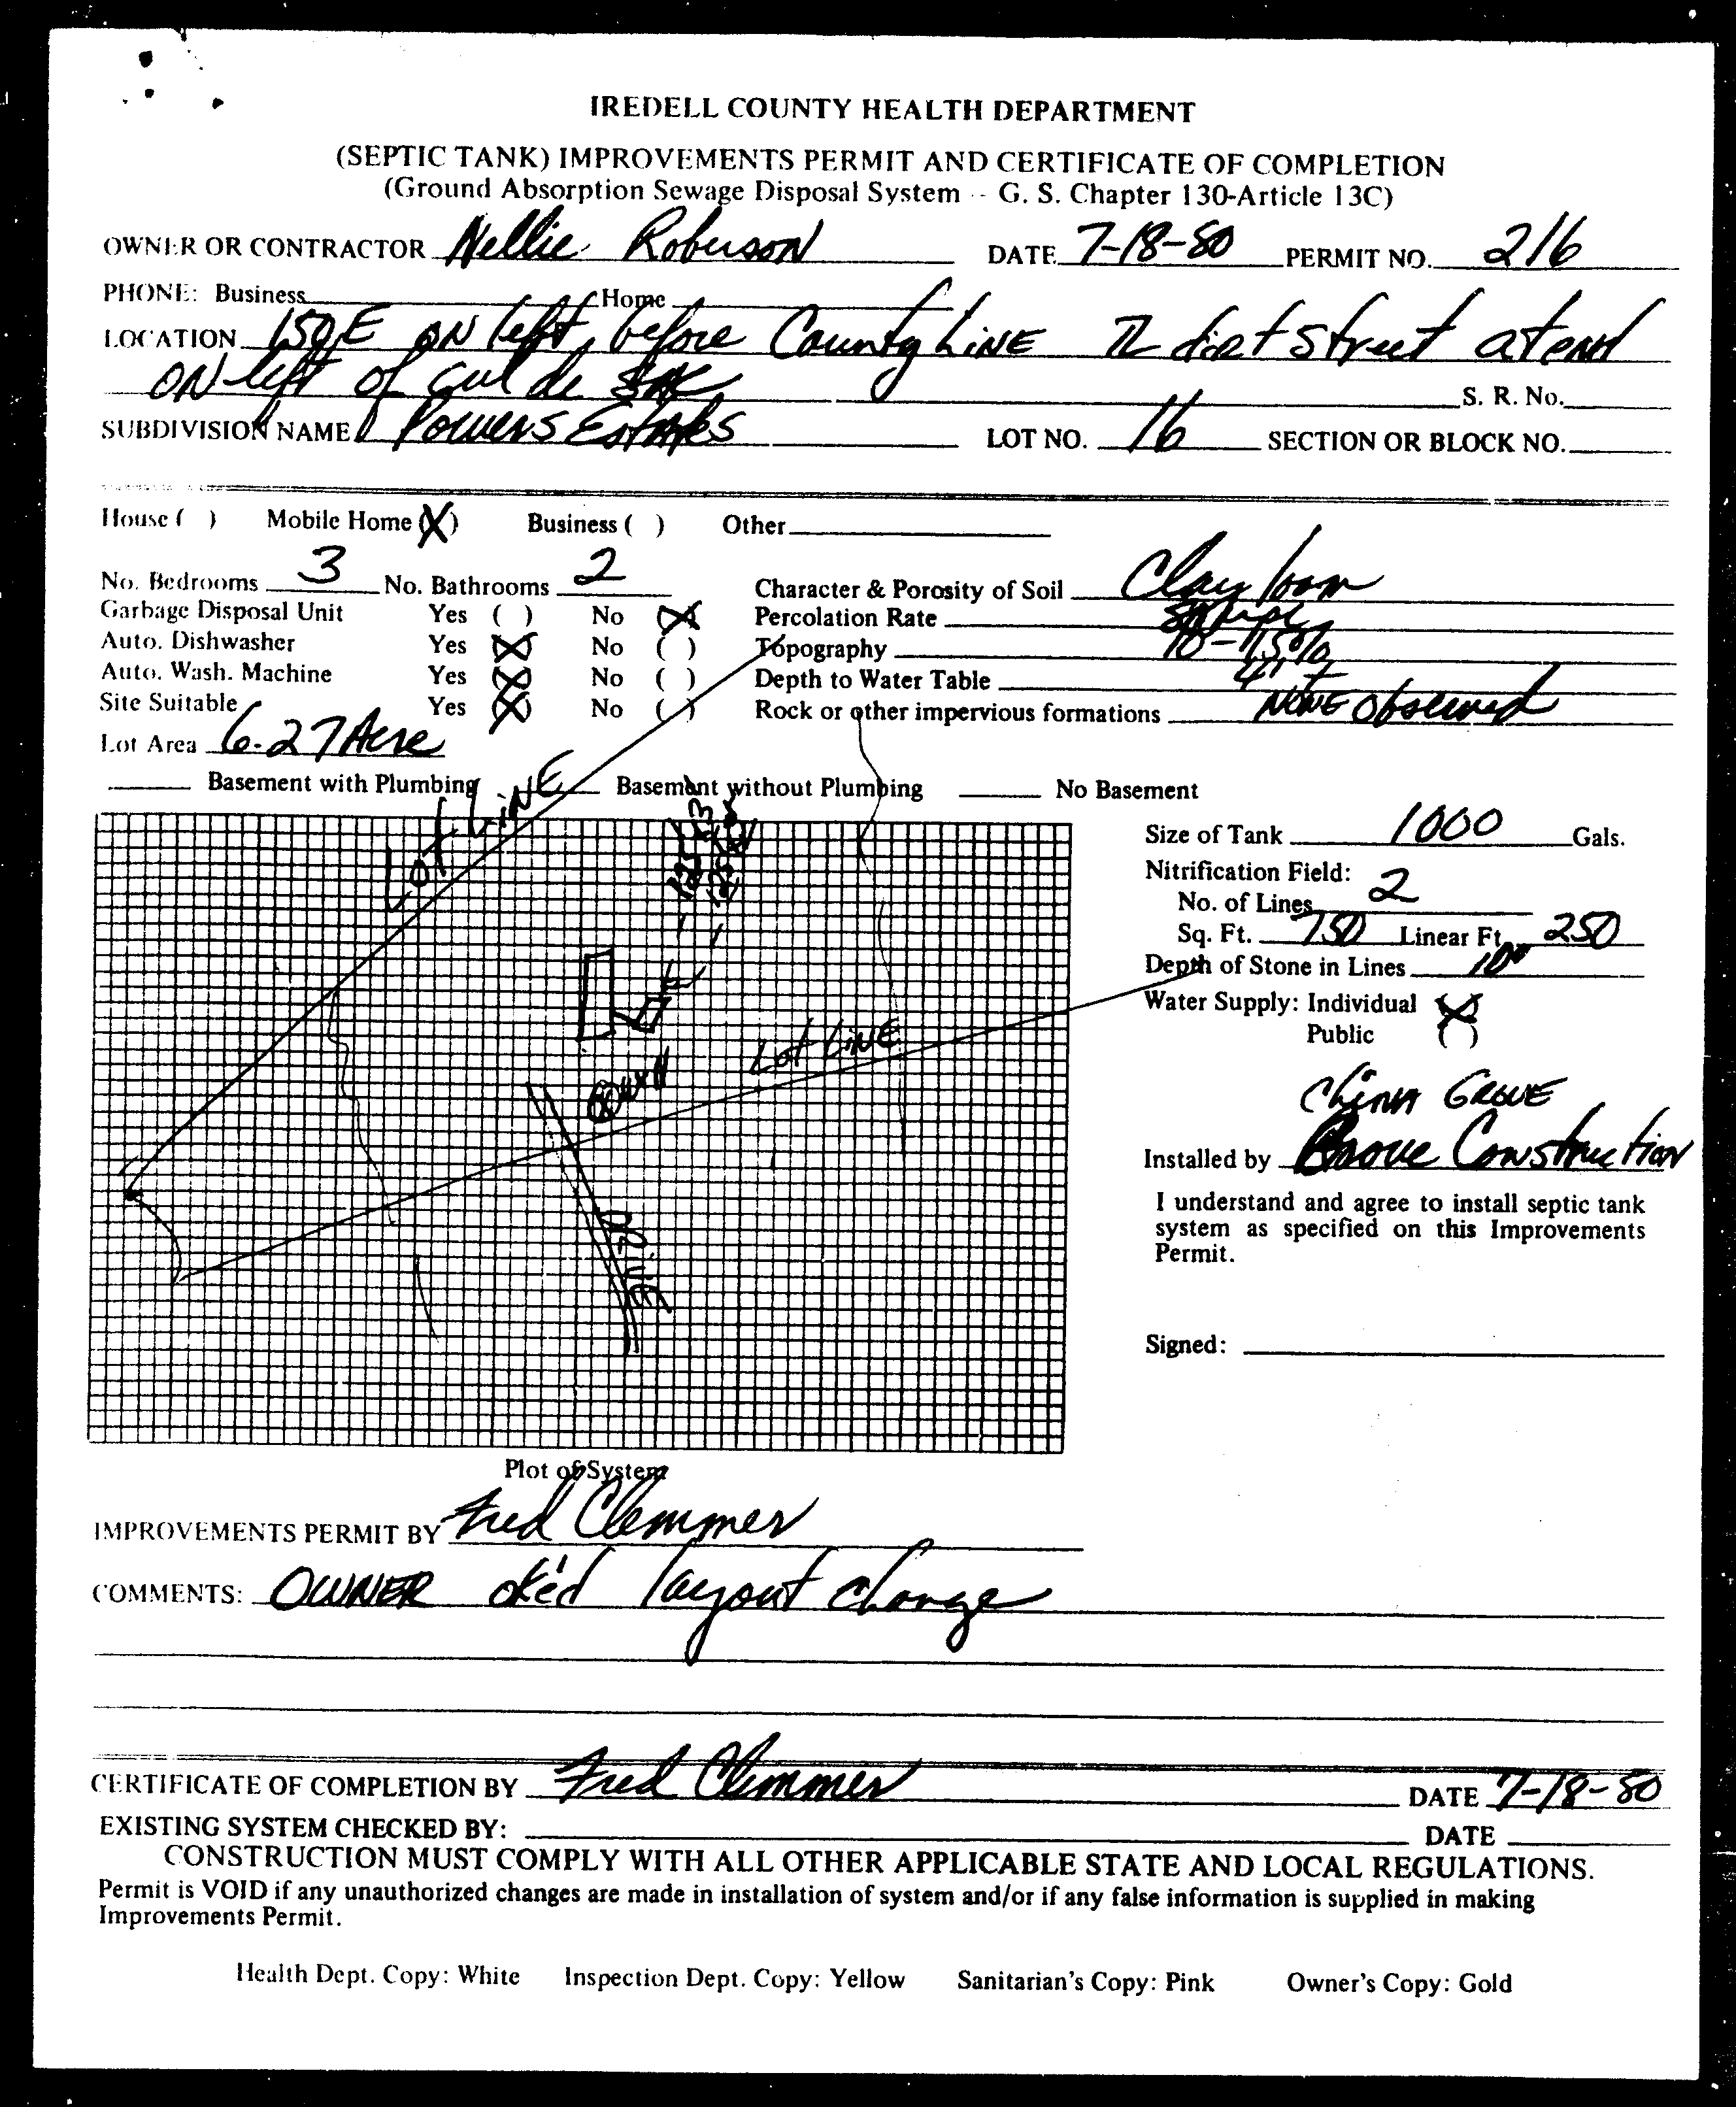 IREDELL COUNTY HEALTH DEPARTMENT
(SEPTIC TANK) IMPROVEMENTS PERMIT AND CERTIFICATE OF COMPLETION
(Ground Absorption Sewage Disposal System -- G. S. Chapter 130-Article 13C)
OWNER OR CONTRACTOR Nellie Roberson DATE 7-18-80 PERMIT NO. 216
PHONE: Business Home
LOCATION 150 E ON left before County LiNE TL dirt street at end
ON left of cul de sac S. R. No.
SUBDIVISION NAME Powers Estates LOT NO. 16 SECTION OR BLOCK NO.
House ( ) Mobile Home (X) Business ( ) Other
No. Bedrooms 3 No. Bathrooms 2 Character & Porosity of Soil Clay loam
Garbage Disposal Unit Yes ( ) No (X) Percolation Rate
Auto. Dishwasher Yes (X) No ( ) Topography 10-15%
Auto. Wash. Machine Yes (X) No ( ) Depth to Water Table 4'+
Site Suitable Yes (X) No ( ) Rock or other impervious formations NONE observed
Lot Area 6.27 Acre
Basement with Plumbing Basement without Plumbing No Basement
Lot LiNE
Size of Tank 1000 Gals.
Nitrification Field:
No. of Lines 2
Sq. Ft. 750 Linear Ft. 250
Depth of Stone in Lines 10"
Water Supply: Individual (X)
Public ( )
Lot LiNE
DRIVE
China GROVE
Installed by Grove Construction
I understand and agree to install septic tank
system as specified on this Improvements
Permit.
Signed:
Plot of System
IMPROVEMENTS PERMIT BY Fred Clemmer
COMMENTS: OWNER ok'ed layout change
CERTIFICATE OF COMPLETION BY Fred Clemmer DATE 7-18-80
EXISTING SYSTEM CHECKED BY: DATE
CONSTRUCTION MUST COMPLY WITH ALL OTHER APPLICABLE STATE AND LOCAL REGULATIONS.
Permit is VOID if any unauthorized changes are made in installation of system and/or if any false information is supplied in making
Improvements Permit.
Health Dept. Copy: White Inspection Dept. Copy: Yellow Sanitarian's Copy: Pink Owner's Copy: Gold